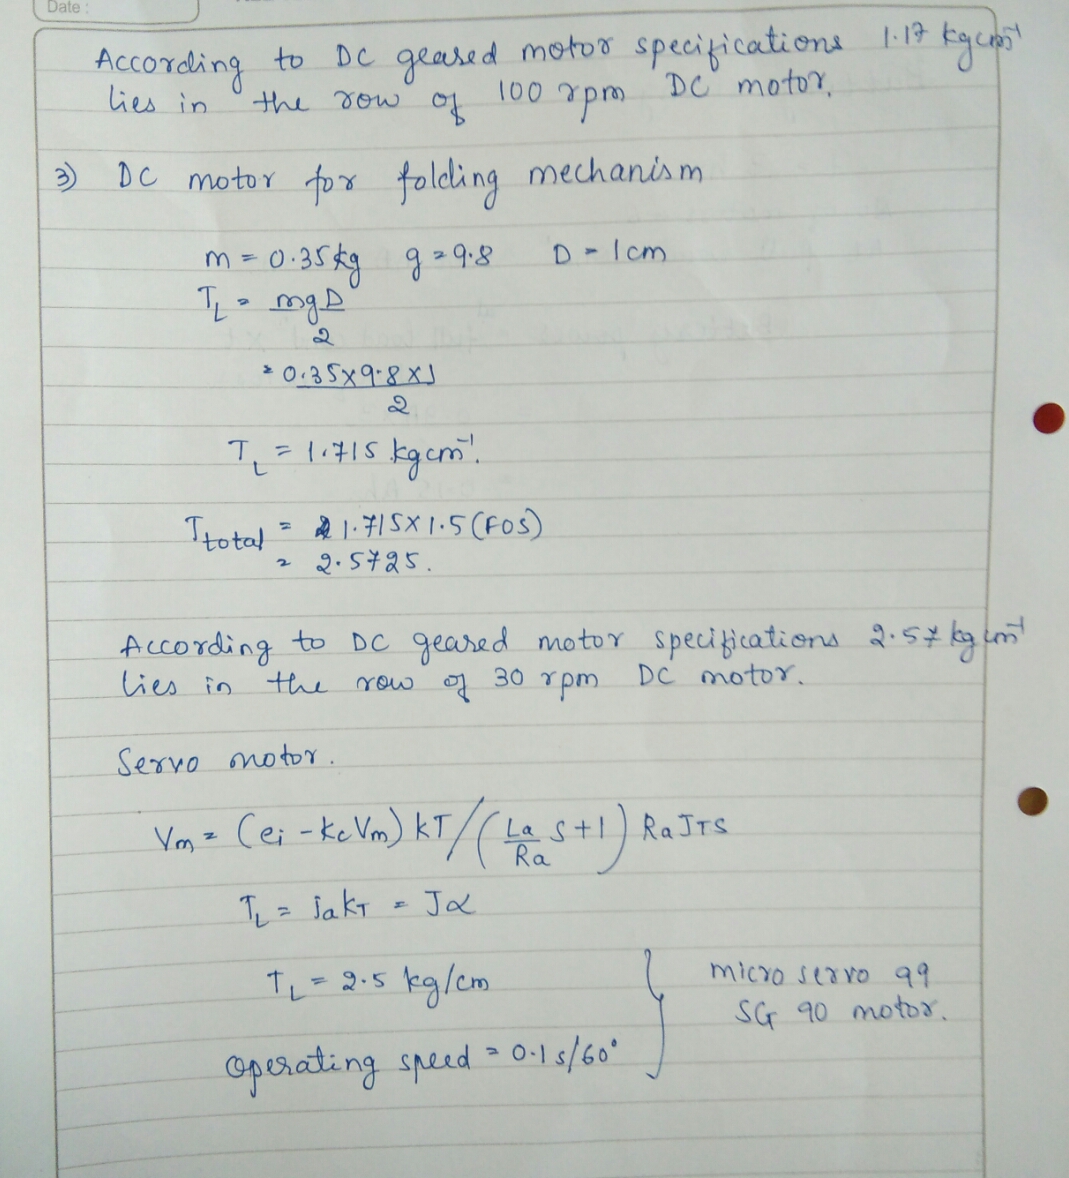 Date :
According to DC geared motor specifications 1.17 kgcm⁻¹
lies in the row of 100 rpm DC motor.
3) DC motor for folding mechanism
m = 0.35kg g = 9.8 D = 1cm
T_L = mgD
2
= 0.35x9.8x1
2
T_L = 1.715 kgcm⁻¹.
T_total = 1.715 x 1.5 (FOS)
= 2.5725.
According to DC geared motor specifications 2.57 kgcm⁻¹
lies in the row of 30 rpm DC motor.
Servo motor.
Vm = (ei - KcVm) KT / (La/Ra S+1) Ra JTS
T_L = iaKT = Jα
T_L = 2.5 kg/cm } micro servo 99
SG 90 motor.
Operating speed = 0.1 s/60°